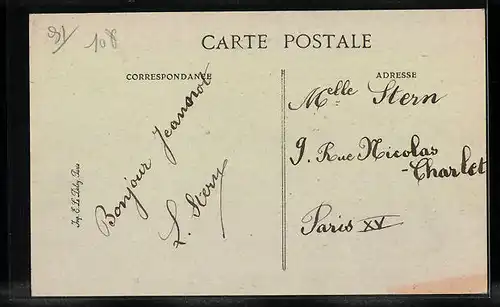 31
108
CARTE POSTALE
CORRESPONDANCE
ADRESSE
Bonjour Jeannot
L. Stern
Melle Stern
9. Rue Nicolas
-Charlet
Paris XV